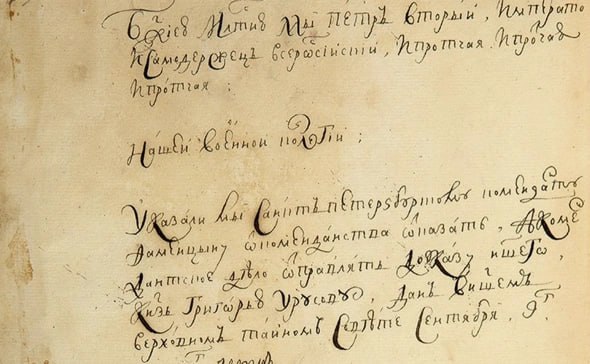 Бжиею Млтию Мы Петръ Вторый, Императо
И Самодержецъ всерѡсийский, И протчая И протчая
И протчая :
Нашей военной колегии ;
Указали мы Санктъ петерсбургскому коменданту
Фаминцыну ѿ комендантства ѿказать, А коме
дантское дѣло ѿправлять до указу нашего,
Кнзь Григорью Урусову, Данъ в нашемъ
верховномъ тайномъ Совѣте Сентября, 9г